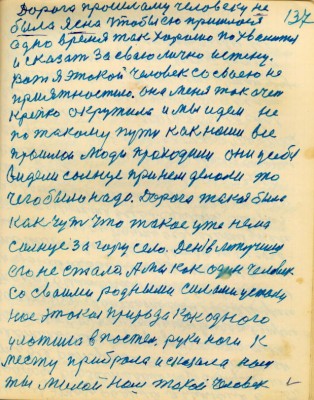 Дорога прошламу человеку не 137
была ясна чтобы ею пришлось
одно время так хорошо похвалится
и сказать за свою лично истину.
Вот я этакой человек со своею не
приятностию. она меня так очеп
крепко окружила и мы идем не
по такому пути как наши все
прошлои люди проходили они у себя
видели солнце при нем делали то
чего было надо. Дорога такая была
как чут что такое уже нема
солнце за гору село. День
его не стало А мы как один человек
со своими родными силами
ное этокая природа как одного
уложила в постел. руки ноги к
месту прибрала и сказала нам
ты милой нам такой человек